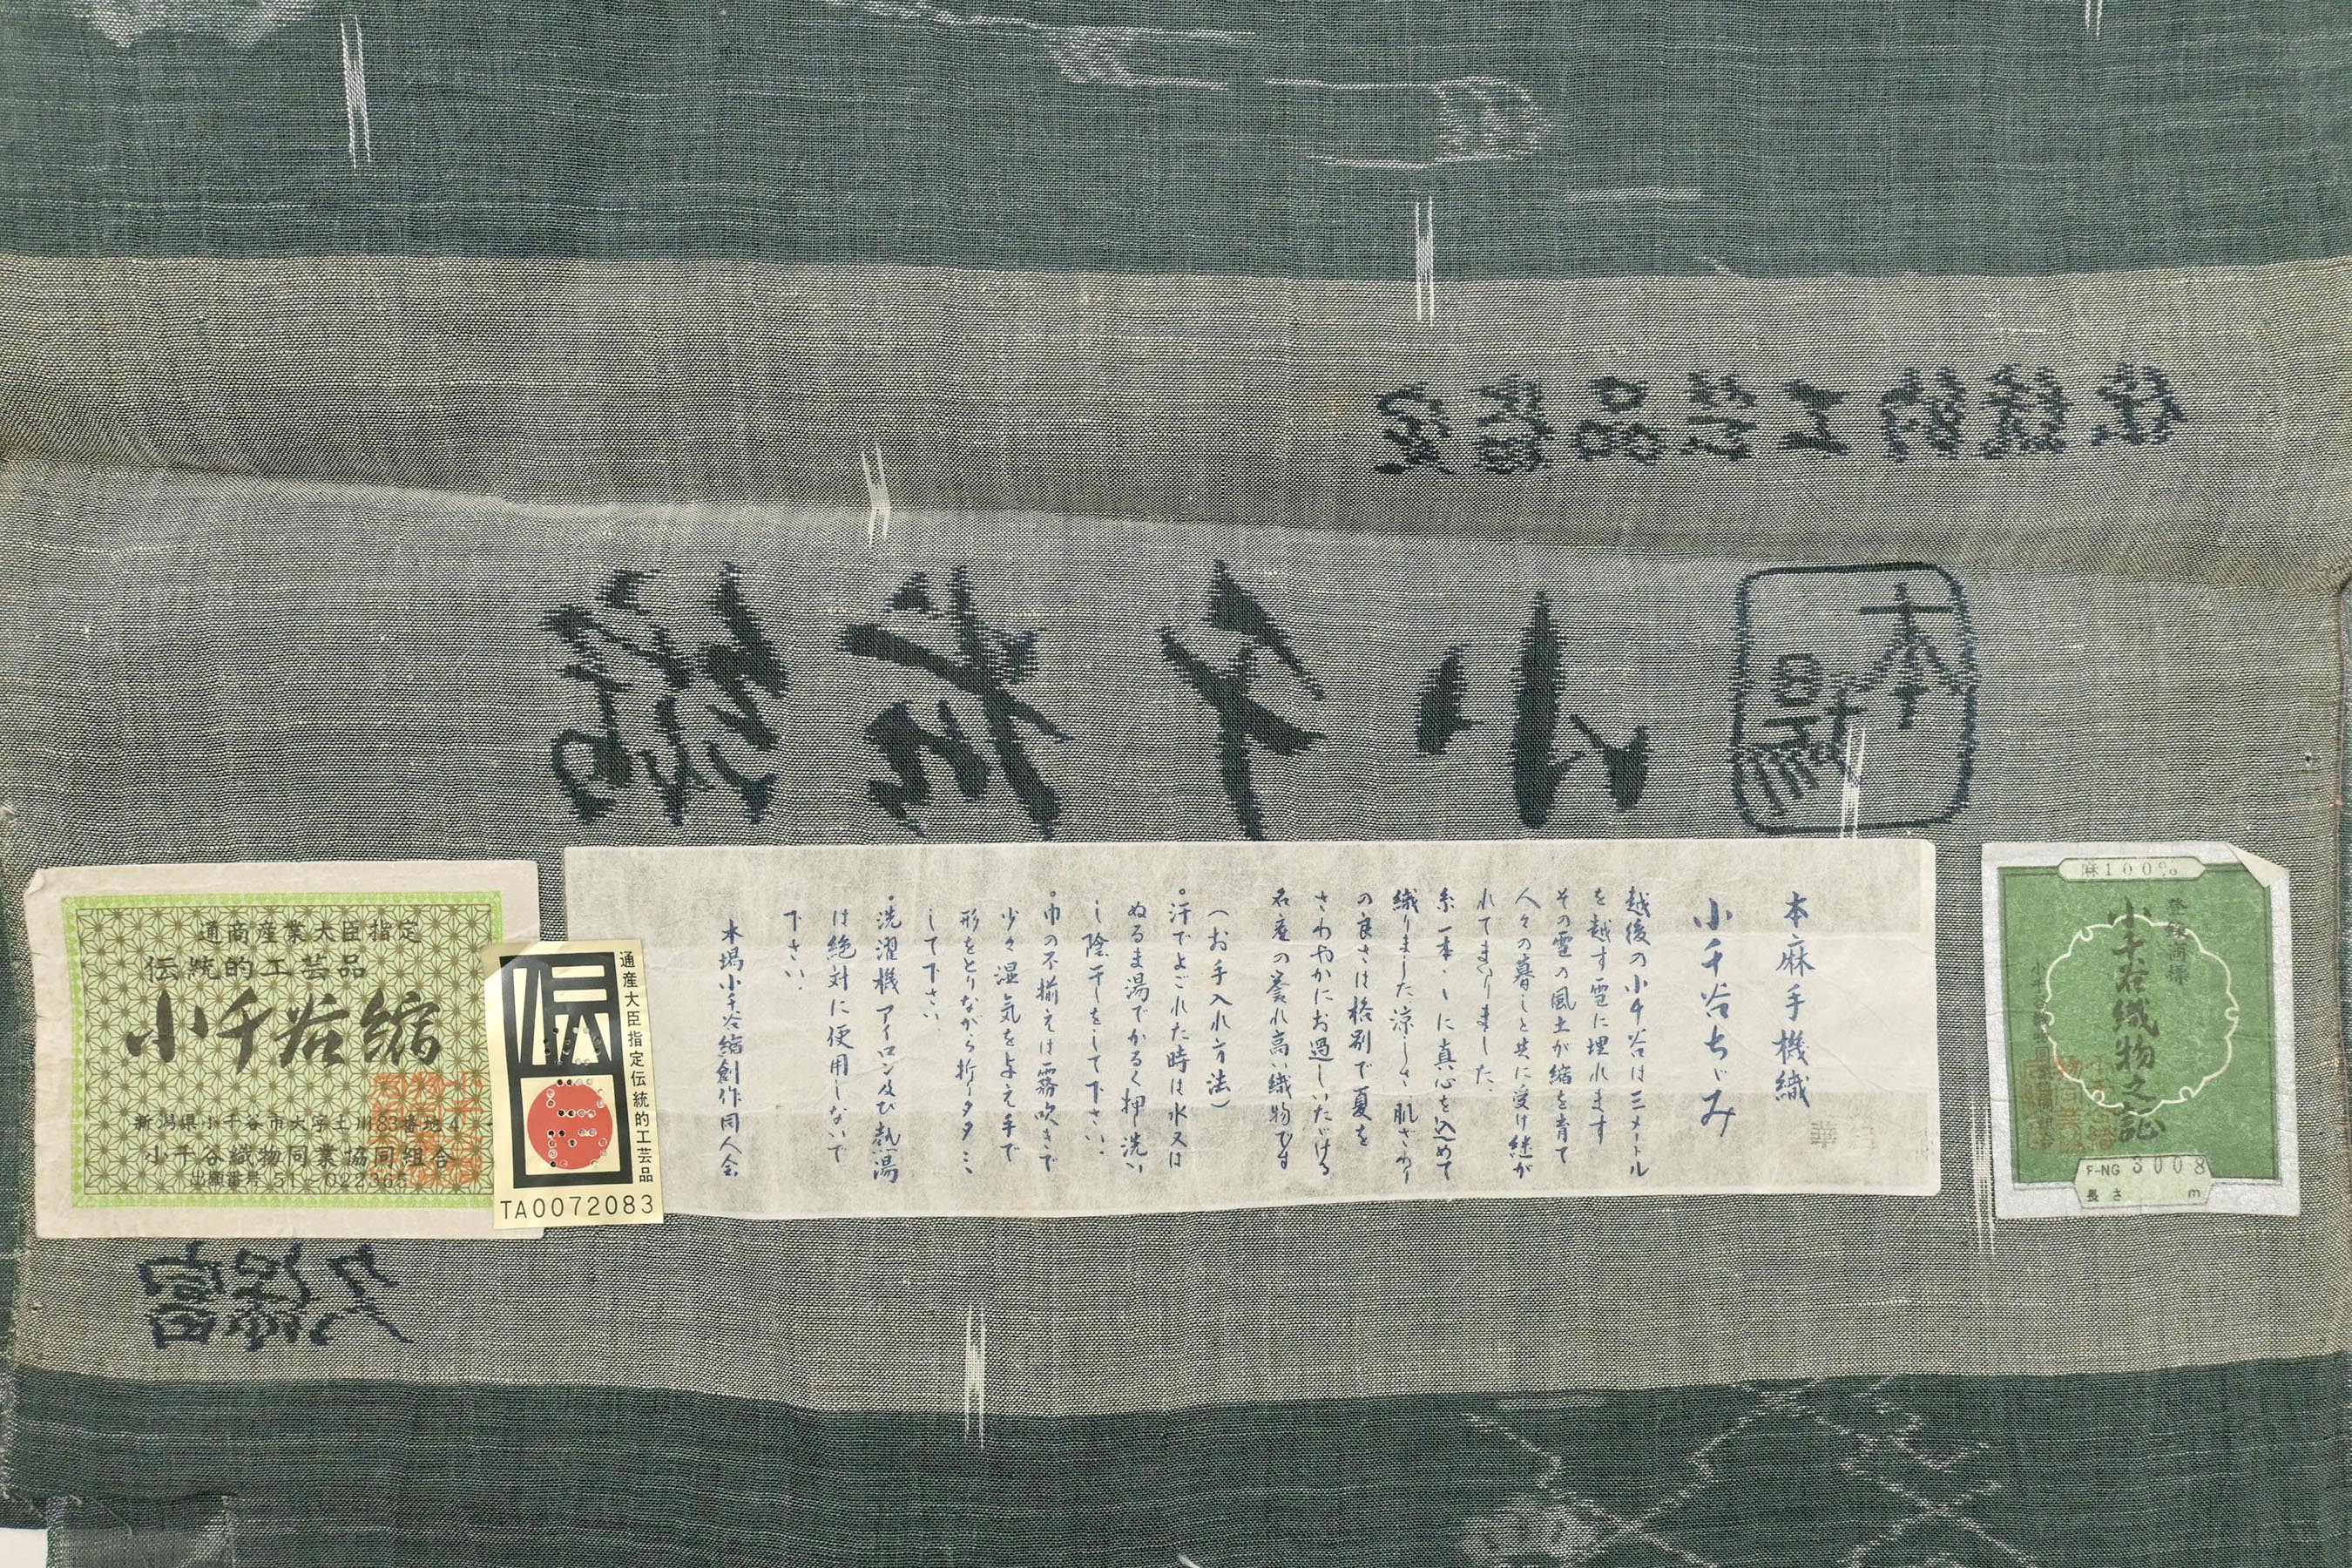 伝統的工芸品鑑定
本場
小千谷縮
通商産業大臣指定
伝統的工芸品
小千谷縮
新潟県小千谷市大字土川83番地4
小千谷織物同業協同組合
出願番号 51-022365
通産大臣指定伝統的工芸品
伝
TA0072083
本麻手機織
小千谷ちゞみ
越後の小千谷は三メートル
を越す雪に埋れます
その雪の風土が縮を育て
人々の暮しと共に受け継が
れてまいりました、
糸一本々に真心を込めて
織りました涼しさ、肌ざわり
の良さは格別で夏を
さわやかにお過しいただける
名産の誉れ高い織物です
(お手入れ方法)
汗でよごれた時は水又は
ぬるま湯でかるく押洗い
し陰干しをして下さい、
巾の不揃えは霧吹きで
少々湿気を与え手で
形をとりながら折りタタミ
して下さい、
洗濯機アイロン及び熱湯
は絶対に使用しないで
下さい、
本場小千谷縮創作同人会
麻100%
登録商標
小千谷織物之証
F-NG 3008
長さ m